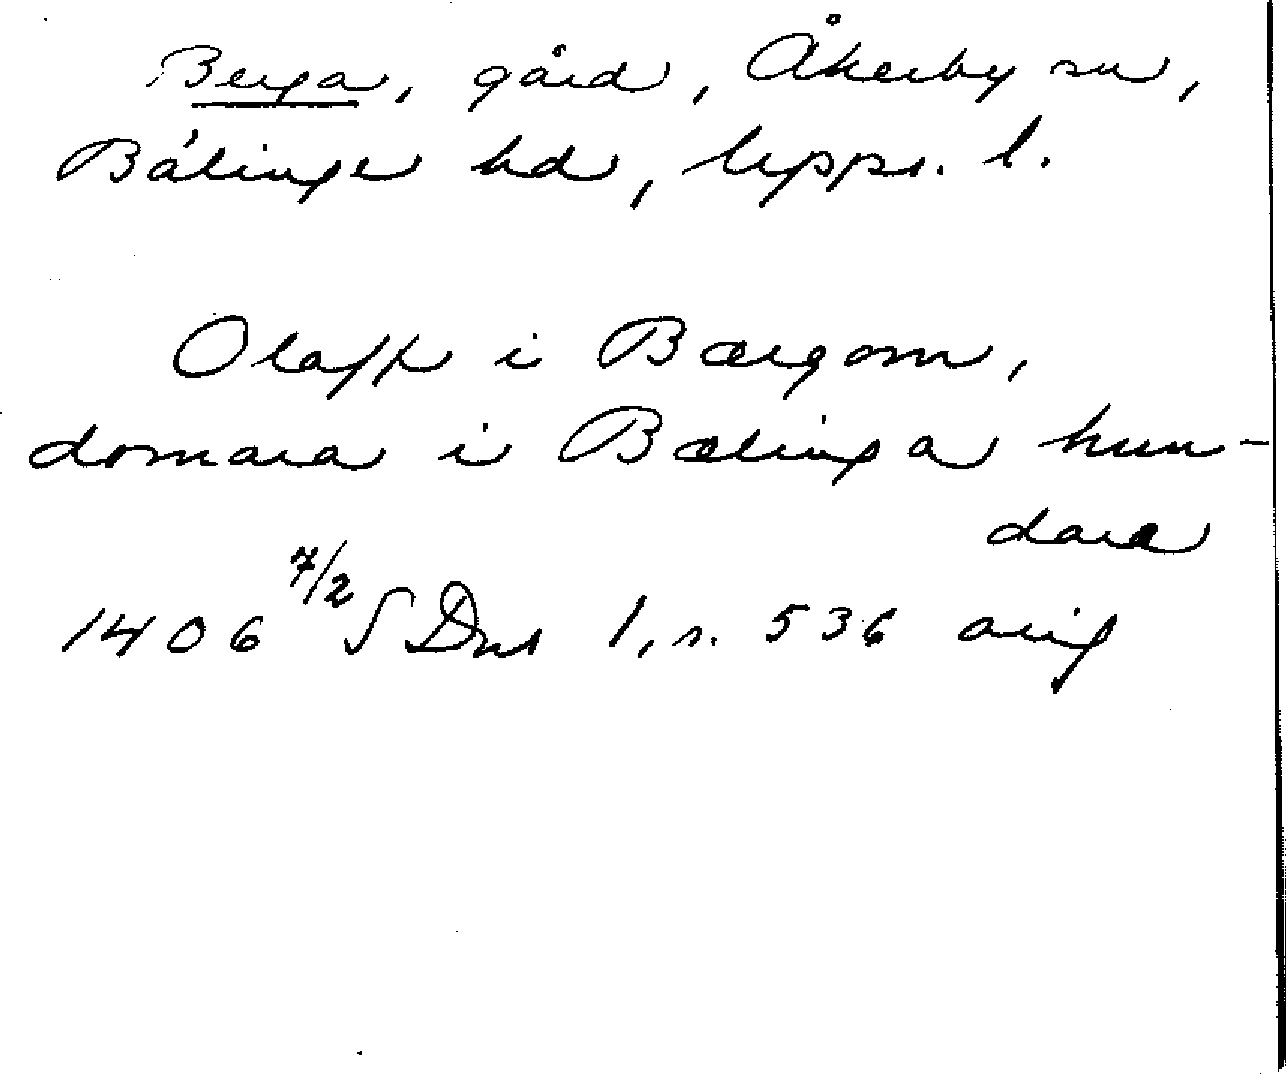 Berga, gård, Åkerby sn,
Bälinge hd, Upps. l.
Olaff i Bærgom,
domara i Bælinga hun-
dara
1406 7/2 SDns 1, s. 536 orig